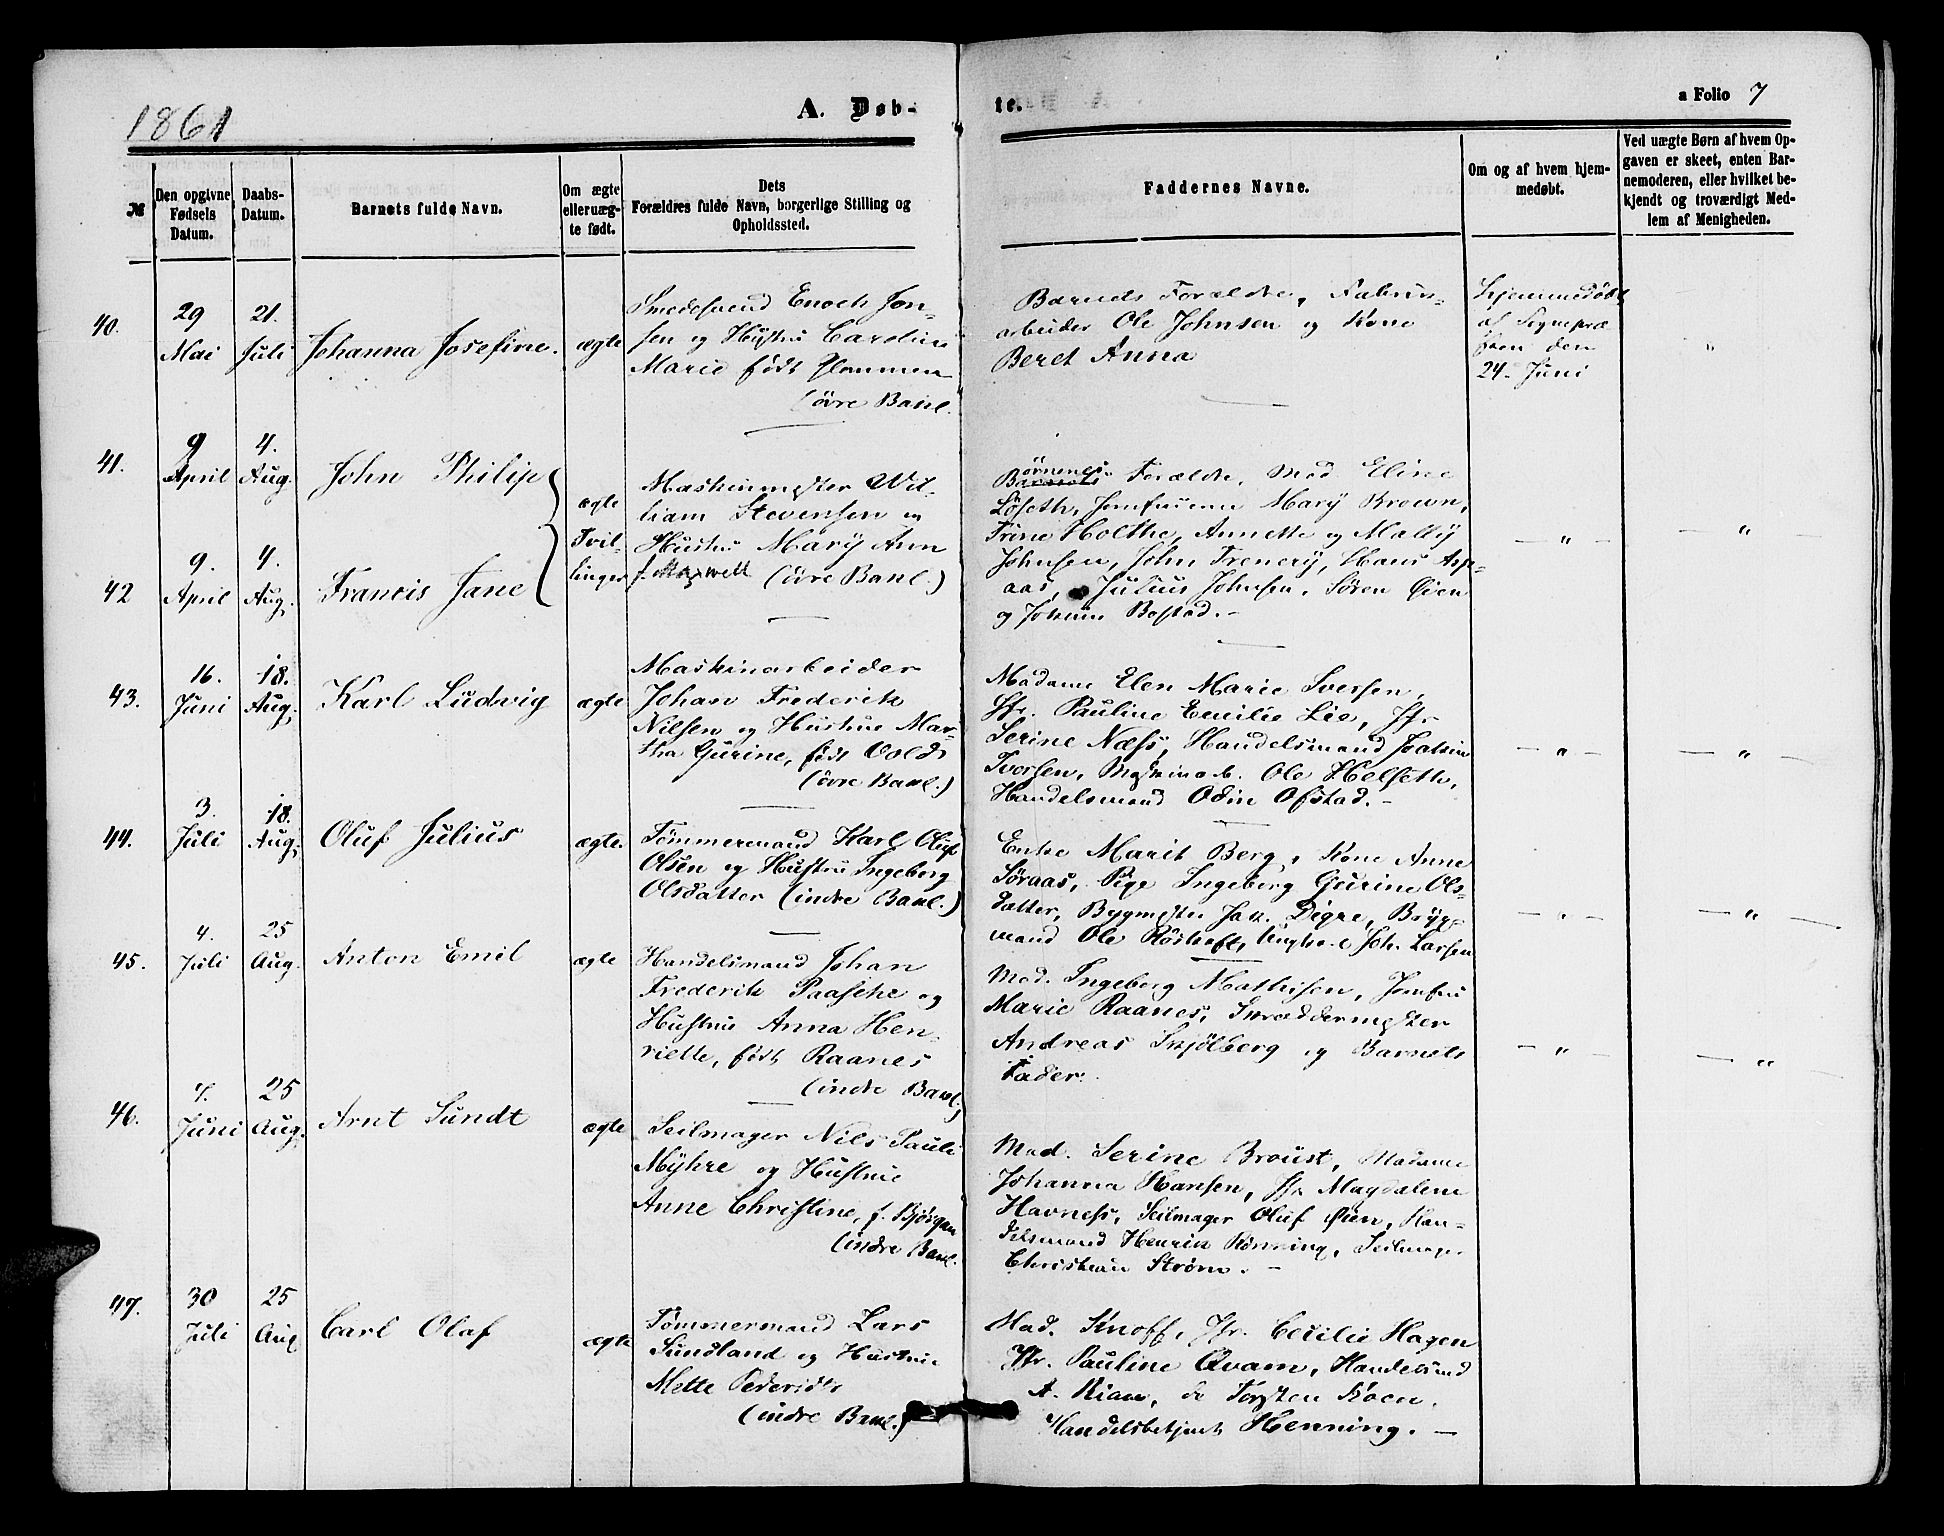 1861
A. Døb-
te.
a Folio 7
№
Den opgivne Fødsels Datum.
Daabs-Datum.
Barnets fulde Navn.
Om ægte eller uægte født.
Dets Forældres fulde Navn, borgerlige Stilling og Opholdssted.
Faddernes Navne.
Om og af hvem hjemmedøbt.
Ved uægte Børn af hvem Opgaven er skeet, enten Barnemoderen, eller hvilket bekjendt og troværdigt Medlem af Menigheden.
40.
29 Mai
21. Juli
Johanna Josefine.
ægte
Smedesvend Enoch Jon-
sen og Hustru Caroline
Marie født Plommen
(övre Bakl.
Barnets Forældre, Fabrik-
arbeider Ole Johnsen og Kone
Beret Anna
Hjemmedøbt
af Sognepræ
sten den
24. Juni
"
41.
9 April
4. Aug.
John Philip
42
9. April
4. Aug.
Francis Jane
ægte
Tvil-
linger
Maskinmester Wil-
liam Stevensen og
Hustru Mary Ann
f. Maxwell (övre Bakl.)
Börnenes Forældre, Mad Eline
Löseth, Jomfruerne Mary Brown,
Trine Holthe, Annette og Mally
Johnsen, John Trenery, Hans Asp-
aas, Julius Johnsen, Sören Øien
og Johan Bostad. -
- " -
- " -
43.
16. Juni
18. Aug.
Karl Ludvig
ægte
Maskinarbeider
Johan Frederik
Nilsen og Hustru Mar-
tha Gurine, født Vold
(övre Bakl.)
Madame Elen Marie Iversen,
Jfr. Pauline Emilie Lie, Jfr
Serine Næss, Handelsmand Joakim
Iversen, Maskinarb. Ole Helseth,
Handelsmand Odin Ofstad. -
- " -
- " -
44.
3. Juli
18. Aug.
Oluf Julius
ægte.
Tømmermand Karl Oluf
Olsen og Hustru Ingeborg
Olsdatter (indre Bakl.)
Enke Marit Berg, Kone Anne
Söraas, Pige Ingeborg Gurine Ols-
datter, Bygmester Jak. Digre, Brygg-
mand Ole Röshoft, Ungkarl Joh. Larsen
- " -
- " -
45.
4. Juli
25 Aug.
Anton Emil
ægte
Handelsmand Johan
Frederik Paasche og
Hustru Anna Hen-
riette, født Raanes
(indre Bakl.)
Mad. Ingeborg Mathisen, Jomfru
Marie Raanes, Skræddermester
Andreas Skjölberg og Barnets
Fader.
- " -
- "
46.
7. Juni
25 Aug.
Arnt Sundt
ægte
Seilmager Nils Pauli
Myhre og Hustru
Anne Christine, f. Bjørgan
(indre Bakl.
Mad. Serine Broust, Madame
Johanna Hansen, Jfr Magdalene
Havness, Seilmager Oluf Øien, Han-
delsmand Henrik Rönning, Seilmager
Christian Ström. -
47.
30 Juli
25 Aug
Carl Olaf
ægte
Tømmermand Lars
Sundland og Hustru
Mette Pedersdtr
(indre Bakl.)
Mad. Knoff, Jfr. Cecilie Hagen
Jfr. Pauline Qvam, Handelsmd
A. Rian, do Torsten Moen,
Handelsbetjent Henning. -